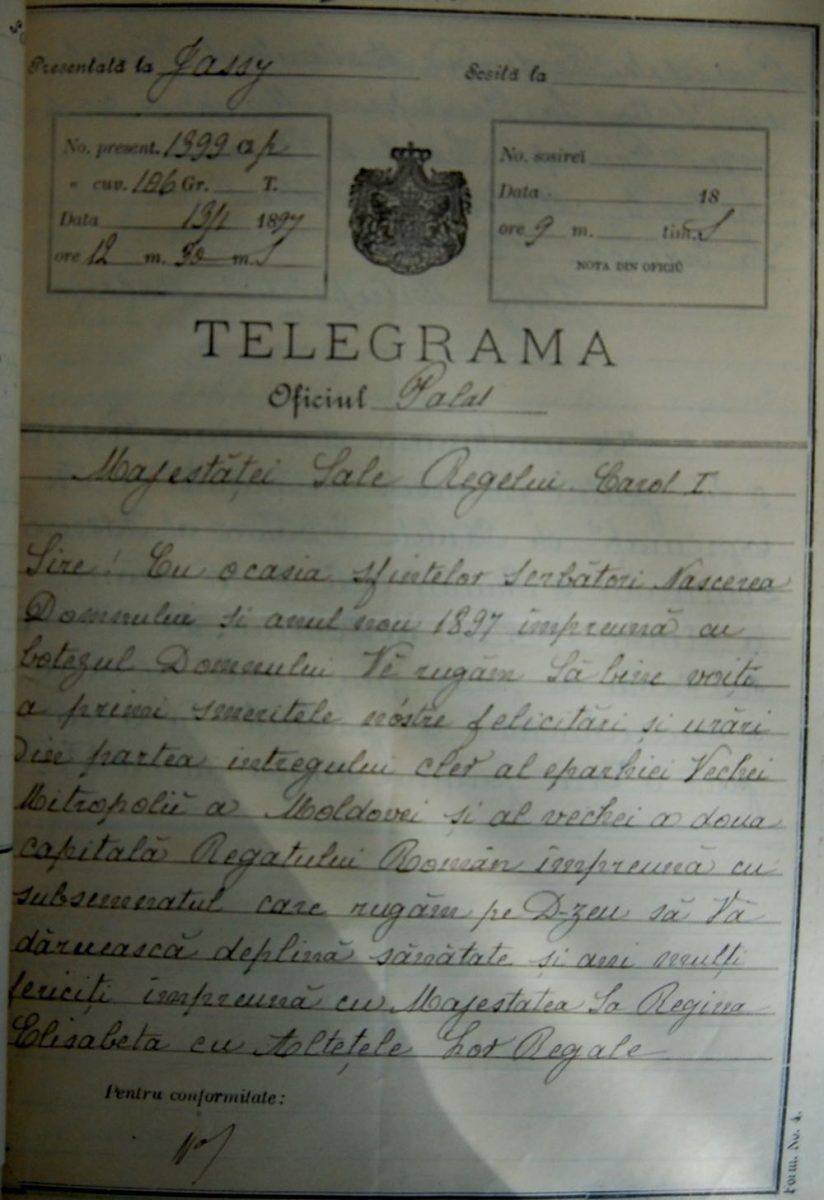 Presentată la Jassy
Sosită la
No. present. 1399 Cl p
" cuv. 106 Gr. T.
Data 13/1 1897
ore 12 m. 50 m. S
No. sosirei
Data 18
ore 9 m. tim. S
NOTA DIN OFICIŬ
TELEGRAMA
Oficiul Palat
Majestăței Sale Regelui Carol I.
Sire! Cu ocasia sfintelor serbători Nascerea
Domnului și anul nou 1897 împreună cu
botezul Domnului Vĕ rugăm Să bine voiți
a primi smeritele nóstre felicitări și urări
Din partea intregului cler al eparhiei Vechei
Mitropoliĭ a Moldovei și al vechei a doua
capitală Regatului Român împreună cu
subsemnatul care rugăm pe D-zeu să Vă
dăruească deplină sănătate și ani mulți
fericiți împreună cu Majestatea Sa Regina
Elisabeta cu Altețele Lor Regale
Pentru conformitate:
Form. No. 4.